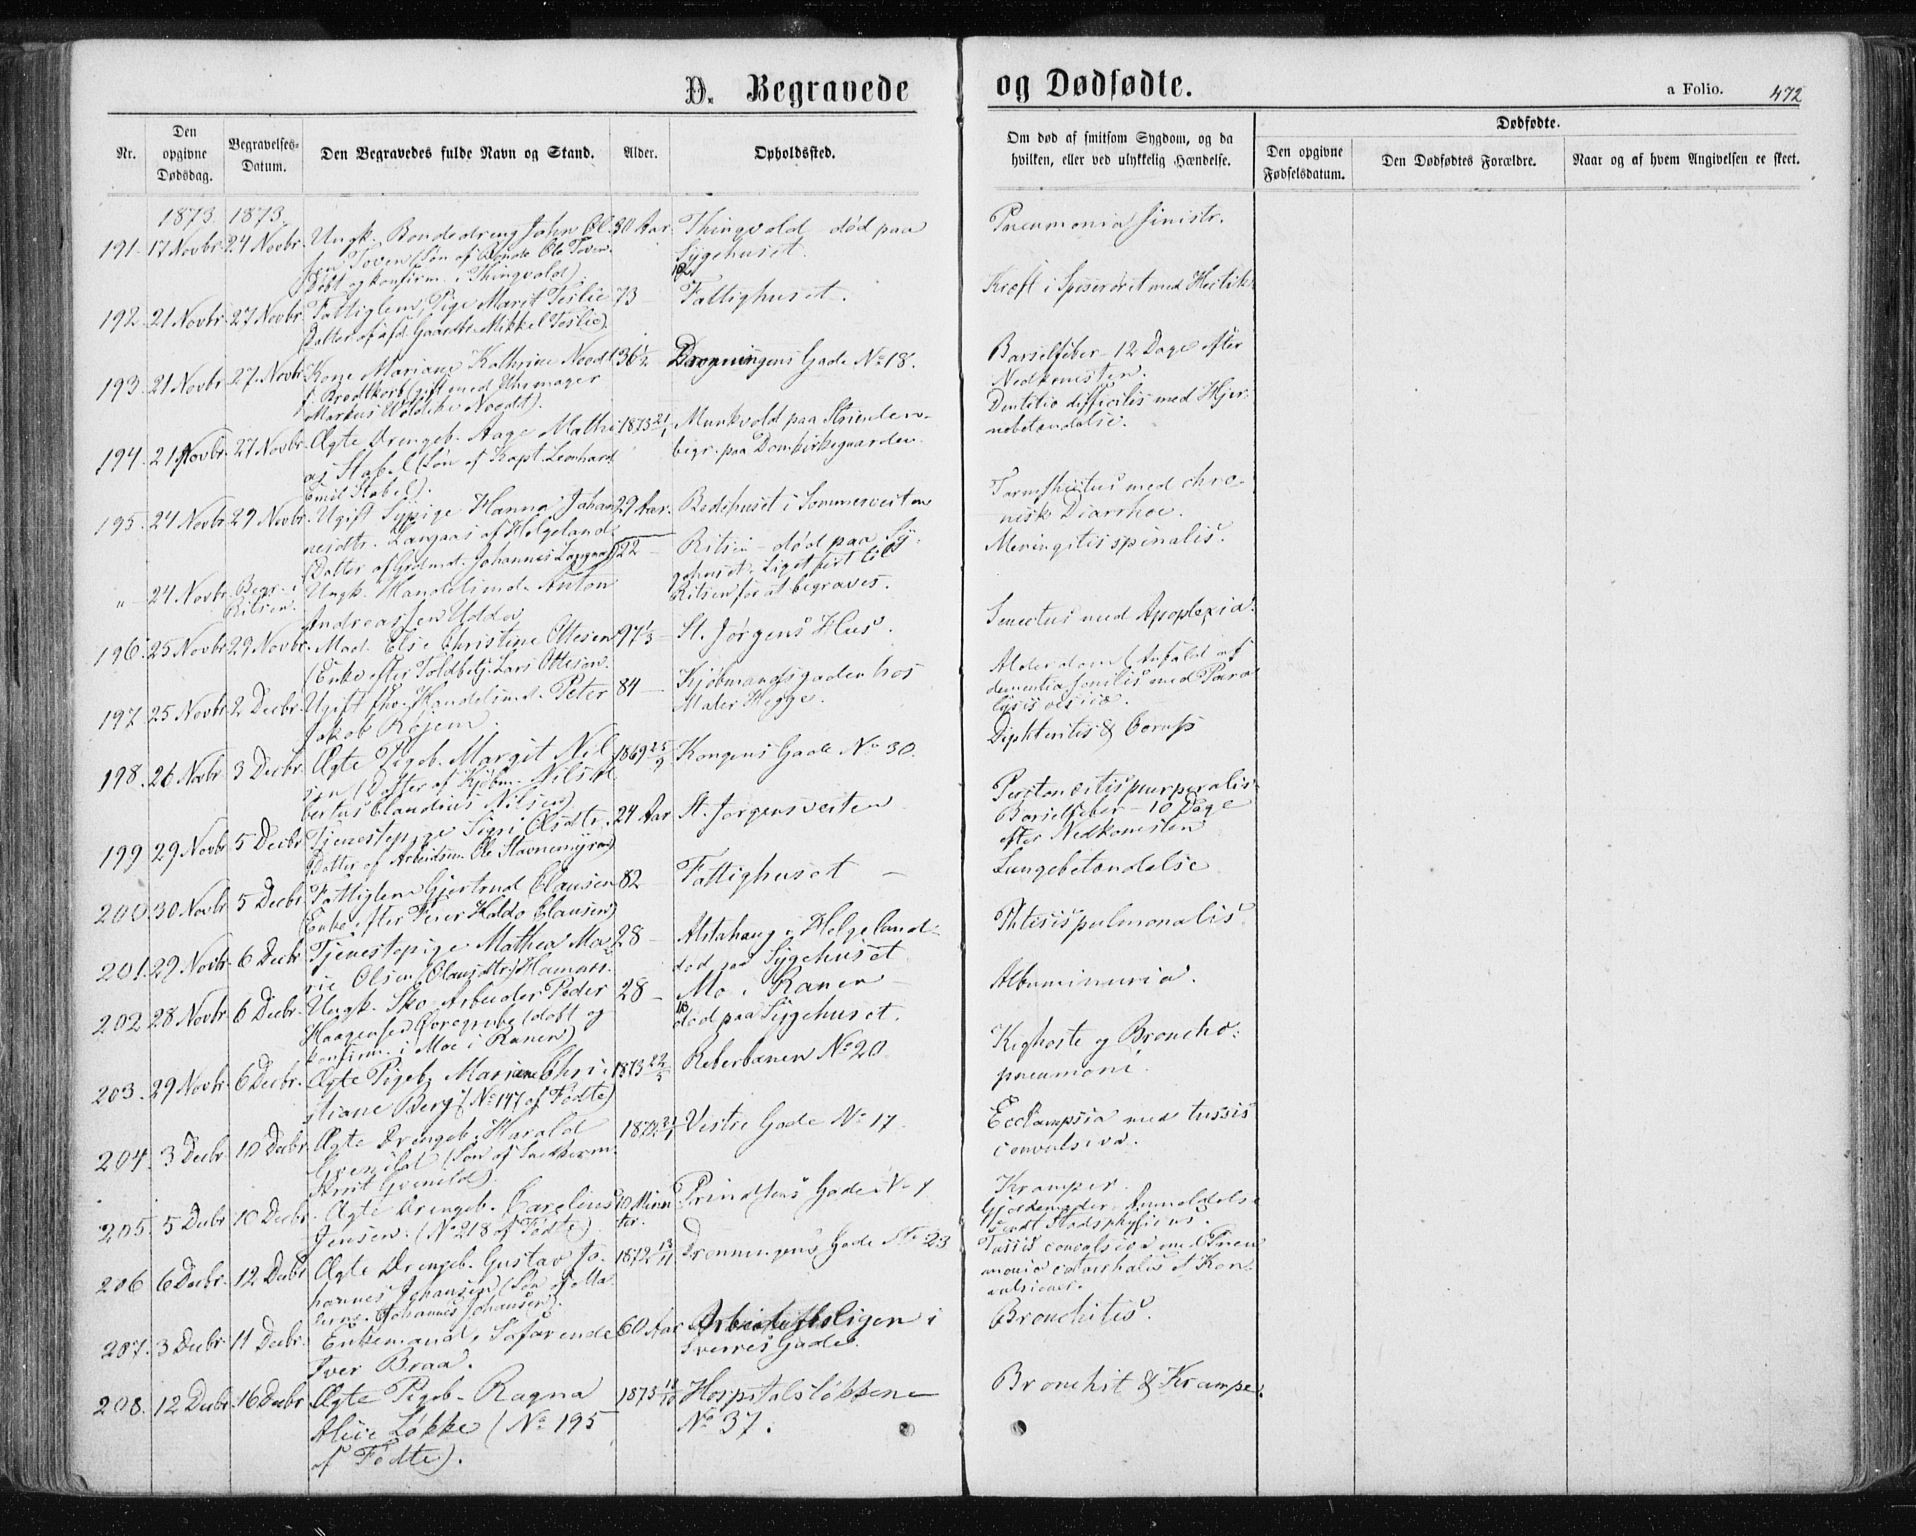 D. Begravede og Dødfødte.
a Folio. 472
Nr.
Den opgivne Dødsdag.
Begravelses-Datum.
Den Begravedes fulde Navn og Stand.
Alder.
Opholdssted.
Om død af smitsom Sygdom, og da hvilken, eller ved ulykkelig Hændelse.
Dødfødte.
Den opgivne Fødselsdatum.
Den Dødfødtes Forældre.
Naar og af hvem Angivelsen er skeet.
1873. 1873.
191. 17 Novbr. 24 Novbr. Ungk. Bondedreng John Ol- 30 Aar Thingvold død paa Pneumonia sinistr.
sen Toven (Søn af Bonde Ole Toven Sygehuset.
Døbt og konfirm. i Thingvold)
192. 21 Novbr. 27 Novbr. Fattiglem, Pige Marit Teslie 73 Fattighuset. Kræft i Spiserøret med Hectik
(Datter af afd. Gaardbr. Mikkel Teslie).
193. 21 Novbr. 27. Novbr. Kone Mariane Kathrine Noodt 36½ Dronningens Gade No 18. Barselfeber - 12 Dage efter
f. Brodtkorb (gift med Uhrmager Nedkomsten.
Markus Noodt).
194. 21 Novbr. 27 Novbr. Ægte Drengeb. Aage Mathi- 1873 21/1 Munkvold paa Strinden- Dentitio difficilis med Hjer-
as Stabel (Søn af Kapt. Leonhard begr. paa Domkirkegaarden. nebetændelse.
Emil Stabel).
195. 24 Novbr. 29 Novbr. Ugift Sypige Hanna Johan- 29 Aar. Bedehuset i Sommerveiten med chro-
nesdtr. Langaas af Helgeland nisk Diarrhoe.
(Datter af Grdmd. Johannes Langaas)
" 24 Novbr. Begr. i Ritsen. Ungk. Handelsmd. Anton 22 Ritsen - død paa Sy- Meningitis spinalis.
Andreassen Uddu gehuset. Liget ført til
Ritsen for at begraves.
196. 25 Novbr. 29 Novbr. Mad. Else Christine Ottesen 97⅓ St. Jørgens Hus. Senectus med Apoplexia.
(Enke efter Toldbetj. Lars Ottesen.
197. 25 Novbr. 2 Decbr. Ugift fhv. Handelsmd. Peter 84 Kjøbmandsgaden hos Alderdom (Anfald af
Jakob Rojem. Maler Hegge. dementia senilis med Para-
lysis vesicæ.
198. 26 Novbr. 3 Decbr. Ægte Pigeb. Margit Nil- 1869 25/9 Kongens Gade No 30. Diphteritis & Corups
sen (Datter af Kjøbm. Nils Al-
bertus Claudius Nilsen)
199 29 Novbr. 5 Decbr. Tjenestepige Sigri Olsdtr. 24 Aar St. Jørgensveiten Peritoneitis puerperalis
(Datter af Arbeidsm. Ole Stavnemyren) Barselfeber - 10 Dage
efter Nedkomsten
200. 30 Novbr. 5 Decbr. Fattiglem Gjertrud Clausen 82 Fattighuset Lungebetændelse
(Enke efter Peter Holdo Clausen)
201. 29. Novbr. 6 Decbr. Tjenestepige Mathea Ma- 28 Alstahaug i Helgeland Phtisis pulmonalis.
rie Olsen død paa Sygehuset
202. 28 Novbr. 6 Decbr. Ungk. Sko-Arbeider Peder 28 Mo i Ranen Albuminuria.
Haagensen (døbt og død paa Sygehuset.
konfirm. i Moe i Ranen)
203. 29 Novbr. 6 Decbr. Ægte Pigeb. Mariane Chri- 1873 22/5 Reberbanen No 20 Kighoste og Broncho-
stiane Berg (No 147 af Fødte) pneumoni.
204. 3 Decbr. 10 Decbr. Ægte Drengeb. Harald Vestre Gade No 17. Ecclampsia med tussis
(Søn af Snedkerm. convulsiva.
205. 5 Decbr. 10 Decbr. Ægte Drengeb. Carelius 10 Minu- Prindsens Gade No 1 Kramper.
Jensen. (No 218 af Fødte). ter. Gjordemoder-Anmeldelse
Stadsphysicus.
206 6 Decbr. 12 Decbr Ægte Drengeb. Gustav Jo- 1872 13/11 Dronningens Gade No 23 Tussis convulsiva med Pneu-
hannes Johansen (Søn af Ma- monia catarrhalis et Kon-
Johannes Johansen). vulsioner.
207. 3 Decbr. 11 Decbr. Enkemand, Søfarende 60 Aar Arbeiderboligen i Bronchitis.
Iver Braa. Sverres Gade.
208. 12 Decbr. 16 Decbr. Ægte Pigeb. Ragna 1873 18/10 Hospitalsløkken Bronchit & Krampe.
Alice Løkke (No 195 No 37.
af Fødte).